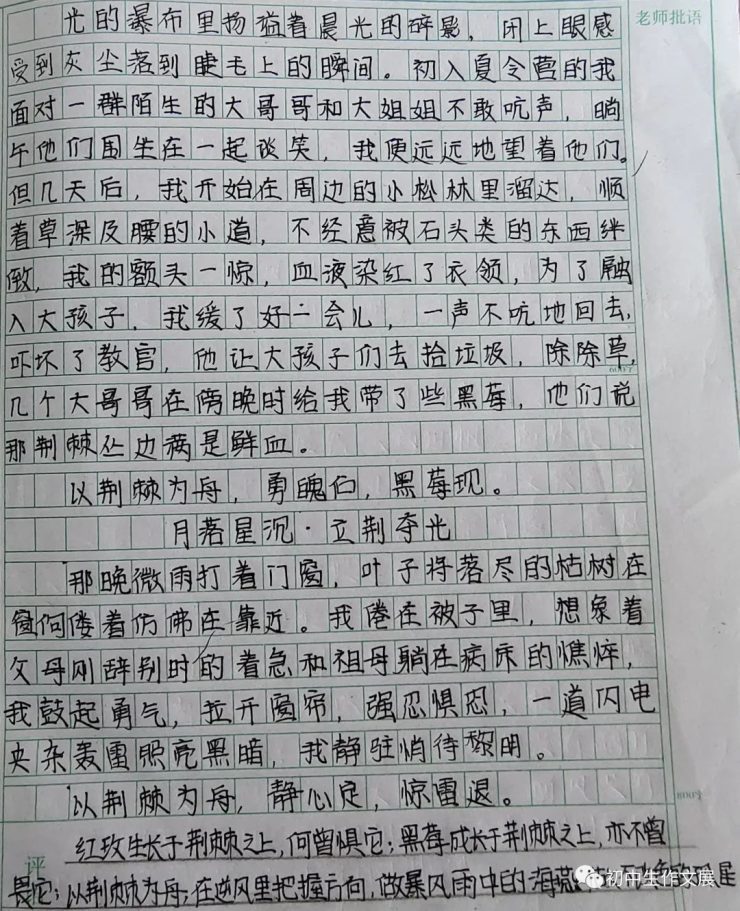 光的瀑布里扬溢着晨光的碎影，闭上眼感
老师批语
受到灰尘落到睫毛上的瞬间。初入夏令营的我
面对一群陌生的大哥哥和大姐姐不敢吭声，晌
午他们围坐在一起谈笑，我便远远地望着他们。
但几天后，我开始在周边的小松林里溜达，顺
着草深及腰的小道，不经意被石头类的东西绊
倒，我的额头一惊，血液染红了衣领，为了融
入大孩子，我缓了好一会儿，一声不吭地回去，
吓坏了教官，他让大孩子们去拾垃圾，除除草，
600字
几个大哥哥在傍晚时给我带了些黑莓，他们说
那荆棘丛边满是鲜血。
以荆棘为舟，勇魄向，黑莓现。
月落星沉·立荆夺光
那晚微雨打着门窗，叶子将落尽的枯树在
窗佝偻着仿佛在靠近。我倦在被子里，想象着
父母刚辞别时的着急和祖母躺在病床的憔悴，
我鼓起勇气，拉开窗帘，强忍惧恐，一道闪电
夹杂轰雷照亮黑暗，我静驻悄待黎明。
以荆棘为舟，静心定，惊雷退。
800字
红玫生长于荆棘之上，何曾惧它；黑莓成长于荆棘之上，亦不曾
评
畏它；以荆棘为舟；在逆风里把握方向，做暴风雨中的海燕
初中生作文展